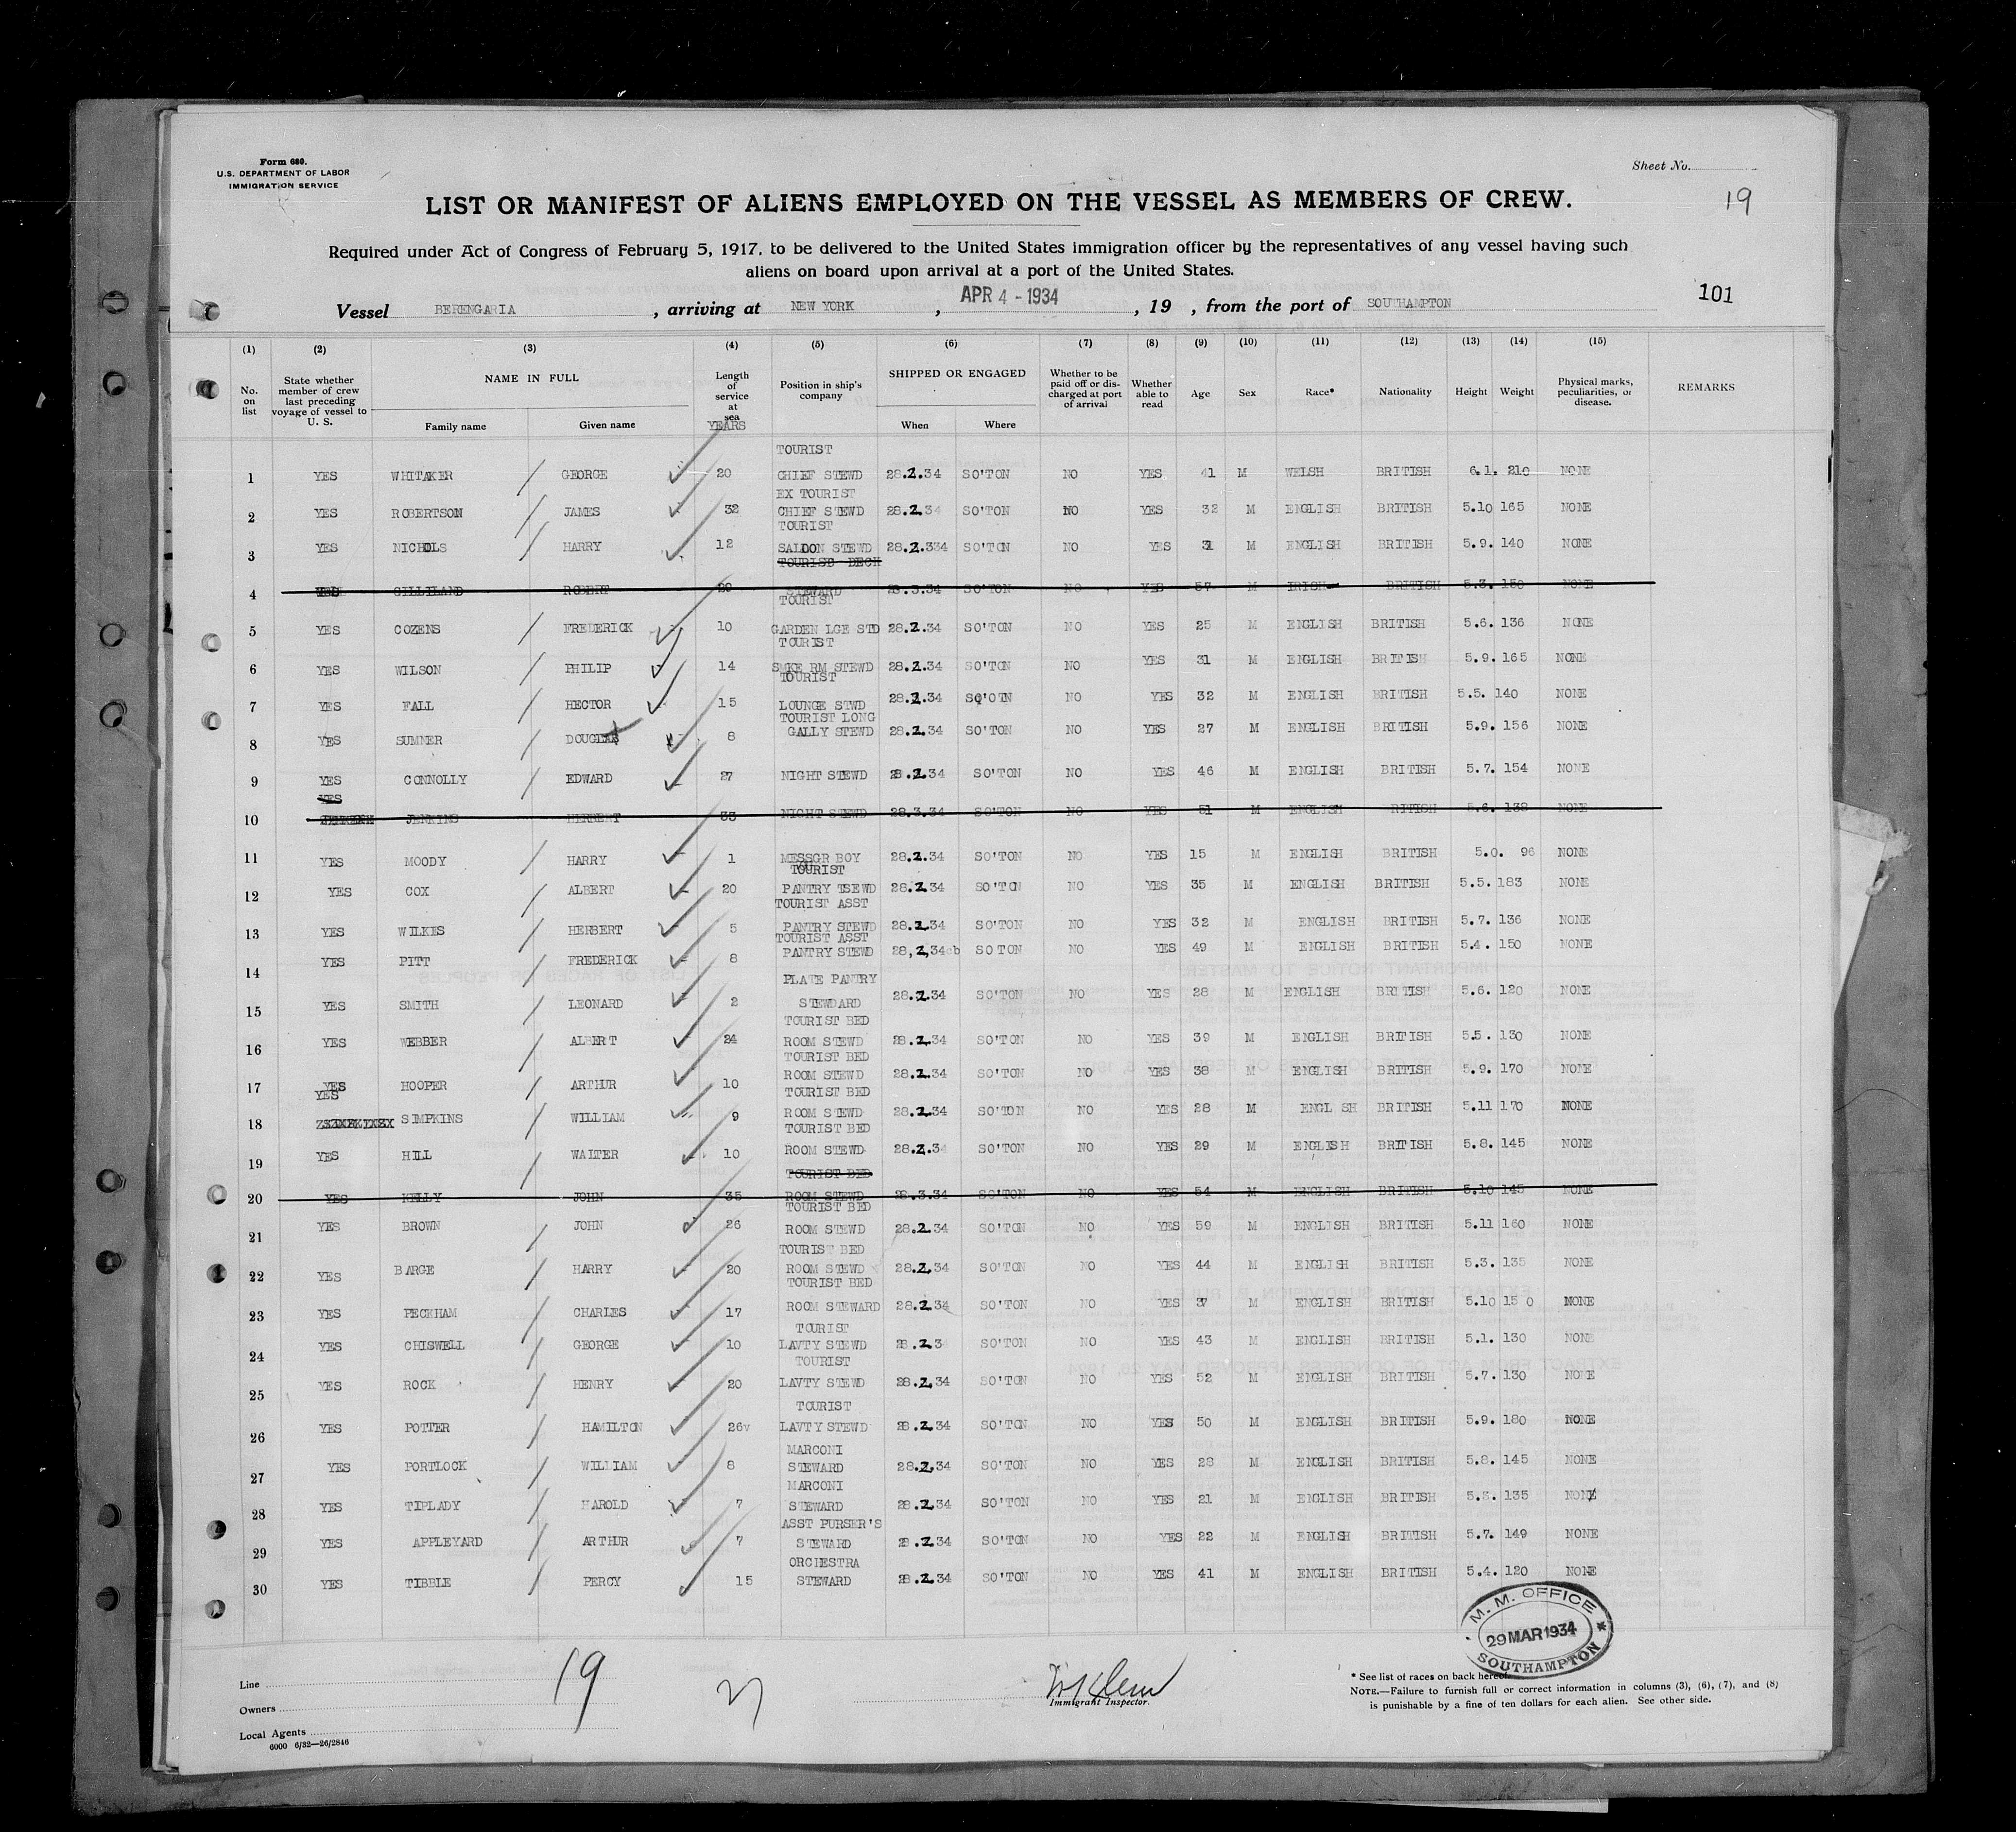 Form 680.
U.S. DEPARTMENT OF LABOR
IMMIGRATION SERVICE
Sheet No.
19
LIST OR MANIFEST OF ALIENS EMPLOYED ON THE VESSEL AS MEMBERS OF CREW.
Required under Act of Congress of February 5, 1917, to be delivered to the United States immigration officer by the representatives of any vessel having such
aliens on board upon arrival at a port of the United States.
Vessel BERENGARIA, arriving at NEW YORK, APR 4 - 1934, 19 , from the port of SOUTHAMPTON 101
(1) (2) (3) (4) (5) (6) (7) (8) (9) (10) (11) (12) (13) (14) (15)
No. on list State whether member of crew last preceding voyage of vessel to U. S. NAME IN FULL Family name Given name Length of service at sea YEARS Position in ship's company SHIPPED OR ENGAGED When Where Whether to be paid off or discharged at port of arrival Whether able to read Age Sex Race* Nationality Height Weight Physical marks, peculiarities, or disease. REMARKS
1 YES WHITAKER GEORGE 20 TOURIST CHIEF STEWD 28.2.34 SO'TON NO YES 41 M WELSH BRITISH 6.1. 210 NONE
2 YES ROBERTSON JAMES 32 EX TOURIST CHIEF STEWD 28.2.34 SO'TON NO YES 32 M ENGLISH BRITISH 5.10 165 NONE
3 YES NICHOLS HARRY 12 TOURIST SALOON STEWD 28.2.334 SO'TON NO YES 31 M ENGLISH BRITISH 5.9. 140 NONE
4 YES GILLILAND ROBERT 29 TOURIST DECH STEWARD 28.3.34 SO'TON NO YES 57 M IRISH BRITISH 5.3. 150 NONE
5 YES COZENS FREDERICK 10 TOURIST GARDEN LGE STD 28.2.34 SO'TON NO YES 25 M ENGLISH BRITISH 5.6. 136 NONE
6 YES WILSON PHILIP 14 TOURIST SMKE RM STEWD 28.2.34 SO'TON NO YES 31 M ENGLISH BRITISH 5.9. 165 NONE
7 YES FALL HECTOR 15 TOURIST LOUNGE STWD 28.2.34 SO'OTN NO YES 32 M ENGLISH BRITISH 5.5. 140 NONE
8 YES SUMNER DOUGLAS 8 TOURIST LONG GALLY STEWD 28.2.34 SO'TON NO YES 27 M ENGLISH BRITISH 5.9. 156 NONE
9 YES CONNOLLY EDWARD 27 NIGHT STEWD 28.2.34 SO'TON NO YES 46 M ENGLISH BRITISH 5.7. 154 NONE
10 YES JENKINS HERBERT 33 NIGHT STEWD 28.3.34 SO'TON NO YES 51 M ENGLISH RITISH 5.6. 138 NONE
11 YES MOODY HARRY 1 MESSGR BOY 28.2.34 SO'TON NO YES 15 M ENGLISH BRITISH 5.0. 96 NONE
12 YES COX ALBERT 20 TOURIST PANTRY TSEWD 28.2.34 SO'TON NO YES 35 M ENGLISH BRITISH 5.5. 183 NONE
13 YES WILKES HERBERT 5 TOURIST ASST PANTRY STEWD 28.2.34 SO'TON NO YES 32 M ENGLISH BRITISH 5.7. 136 NONE
14 YES PITT FREDERICK 8 TOURIST ASST PANTRY STEWD 28,2,34cb SO TON NO YES 49 M ENGLISH BRITISH 5.4. 150 NONE
15 YES SMITH LEONARD 2 PLATE PANTRY STEWDARD 28.2.34 SO'TON NO YES 28 M ENGLISH BRITISH 5.6. 120 NONE
16 YES WEBBER ALBERT 24 TOURIST BED ROOM STEWD 28.2.34 SO'TON NO YES 39 M ENGLISH BRITISH 5.5. 130 NONE
17 YES HOOPER ARTHUR 10 TOURIST BED ROOM STEWD 28.2.34 SO'TON NO YES 38 M ENGLISH BRITISH 5.9. 170 NONE
18 YES SIMPKINS WILLIAM 9 TOURIST BED ROOM STEWD 28.2.34 SO'TON NO YES 28 M ENGL SH BRITISH 5.11 170 NONE
19 YES HILL WALTER 10 TOURIST BED ROOM STEWD 28.2.34 SO'TON NO YES 29 M ENGLISH BRITISH 5.8. 145 NONE
20 YES KELLY JOHN 35 TOURIST BED ROOM STEWD 28.3.34 SO'TON NO YES 54 M ENGLISH BRITISH 5.10 145 NONE
21 YES BROWN JOHN 26 TOURIST BED ROOM STEWD 28.2.34 SO'TON NO YES 59 M ENGLISH BRITISH 5.11 160 NONE
22 YES BARGE HARRY 20 TOURIST BED ROOM STEWD 28.2.34 SO'TON NO YES 44 M ENGLISH BRITISH 5.3. 135 NONE
23 YES PECKHAM CHARLES 17 TOURIST BED ROOM STEWARD 28.2.34 SO'TON NO YES 37 M ENGLISH BRITISH 5.10 15 0 NONE
24 YES CHISWELL GEORGE 10 TOURIST LAVTY STEWD 28.2.3 SO'TON NO YES 43 M ENGLISH BRITISH 5.1. 130 NONE
25 YES ROCK HENRY 20 TOURIST LAVTY STEWD 28.2.34 SO'TON NO YES 52 M ENGLISH BRITISH 5.7. 130 NONE
26 YES POTTER HAMILTON 26v TOURIST LAVTY STEWD 28.2.34 SO'TON NO YES 50 M ENGLISH BRITISH 5.9. 180 NONE
27 YES PORTLOCK WILLIAM 8 MARCONI STEWARD 28.2.34 SO'TON NO YES 28 M ENGLISH BRITISH 5.8. 145 NONE
28 YES TIPLADY HAROLD 7 MARCONI STEWARD 28.2.34 SO'TON NO YES 21 M ENGLISH BRITISH 5.3. 135 NONE
29 YES APPLEYARD ARTHUR 7 ASST PURSER'S STEWARD 28.2.34 SO'TON NO YES 22 M ENGLISH BRITISH 5.7. 149 NONE
30 YES TIBBLE PERCY 15 ORCHESTRA STEWARD 28.2.34 SO'TON NO YES 41 M ENGLISH BRITISH 5.4. 120 NONE
M. M. OFFICE
29 MAR 1934
SOUTHAMPTON
Line
Owners
Local Agents
6000 6/32—26/2846
19
27
Immigrant Inspector.
* See list of races on back hereof.
NOTE.—Failure to furnish full or correct information in columns (3), (6), (7), and (8)
is punishable by a fine of ten dollars for each alien. See other side.